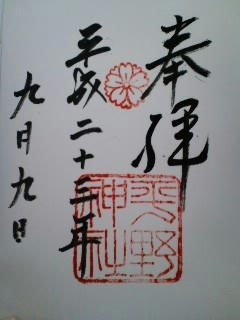 奉拝
平成二十三年
九月九日
平野
神社